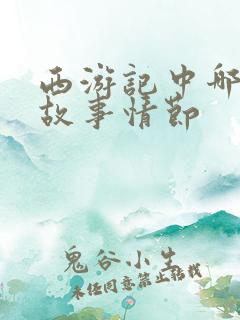 西游記中那
故事情節
鬼谷小生
未经同意禁止转载